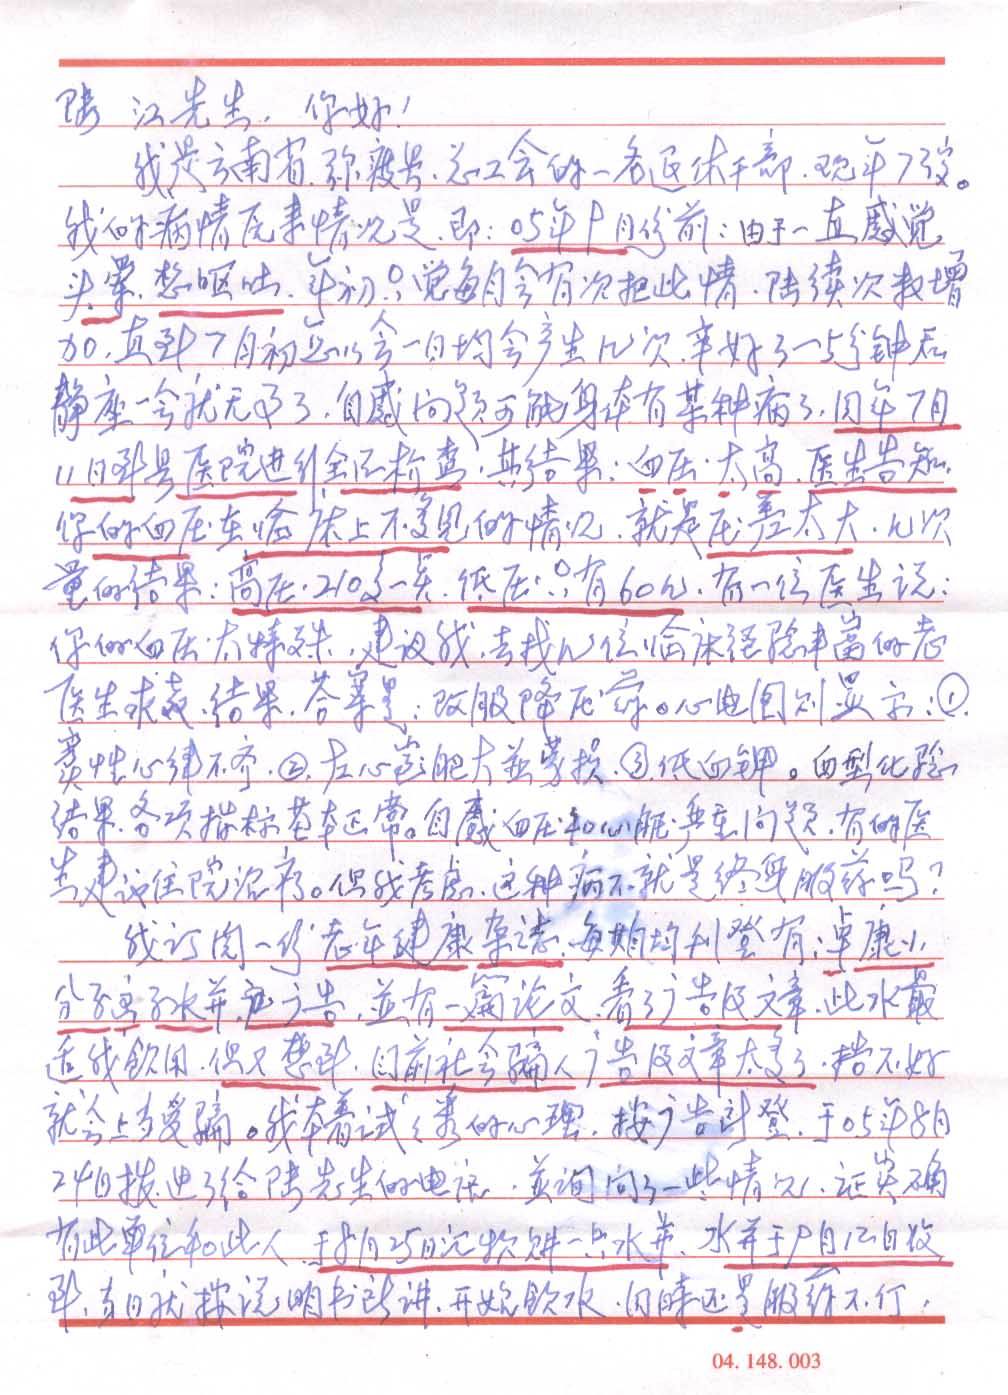 陆江先生，你好！
我是云南省弥渡县总工会的一名退休干部，现年73岁。
我的病情原来情况是，即：05年9月份前：由于一直感觉
头晕、想呕吐，年初只觉每月会有次把此情，陆续次数增
加，直到7月初以会一日均会产生几次，幸好3—5分钟后
静座一会就无事了，自感问题可能身体有某种病了，同年7月
11日到县医院进行全面检查，其结果：血压太高，医生告知
你的血压在临床上不多见的情况，就是压差太大，几次
量的结果：高压210多一点，低压只有60几，有一位医生说：
你的血压太特殊，建议我去找几位临床经验丰富的老
医生求教，结果，答案是：改服降压药。心电图则显示：①
窦性心律不齐，②左心室肥大并劳损，③低血钾。血型化验
结果各项指标基本正常。自感血压和心脏严重问题，有的医
生建议住院治疗。但我考虑，这种病不就是终身服药吗？
我订阅一份老年健康杂志，每期均刊登有：卓康小
分子团水井广告，並有一篇论文，看了广告及文章，此水最
适我飲用，但又想到，目前社会骗人广告及文章太多了，搞不好
就会上当受骗。我本着试试看的心理，按广告刊登，于05年8月
24日拨电话给陆先生的电话，並询问了一些情况，证实确
有此单位和此人，于8月25日汇款购一只水井，水井于9月12日收
到，当日就按说明书所讲，开始飲水，同時还是服药不行，
04. 148. 003